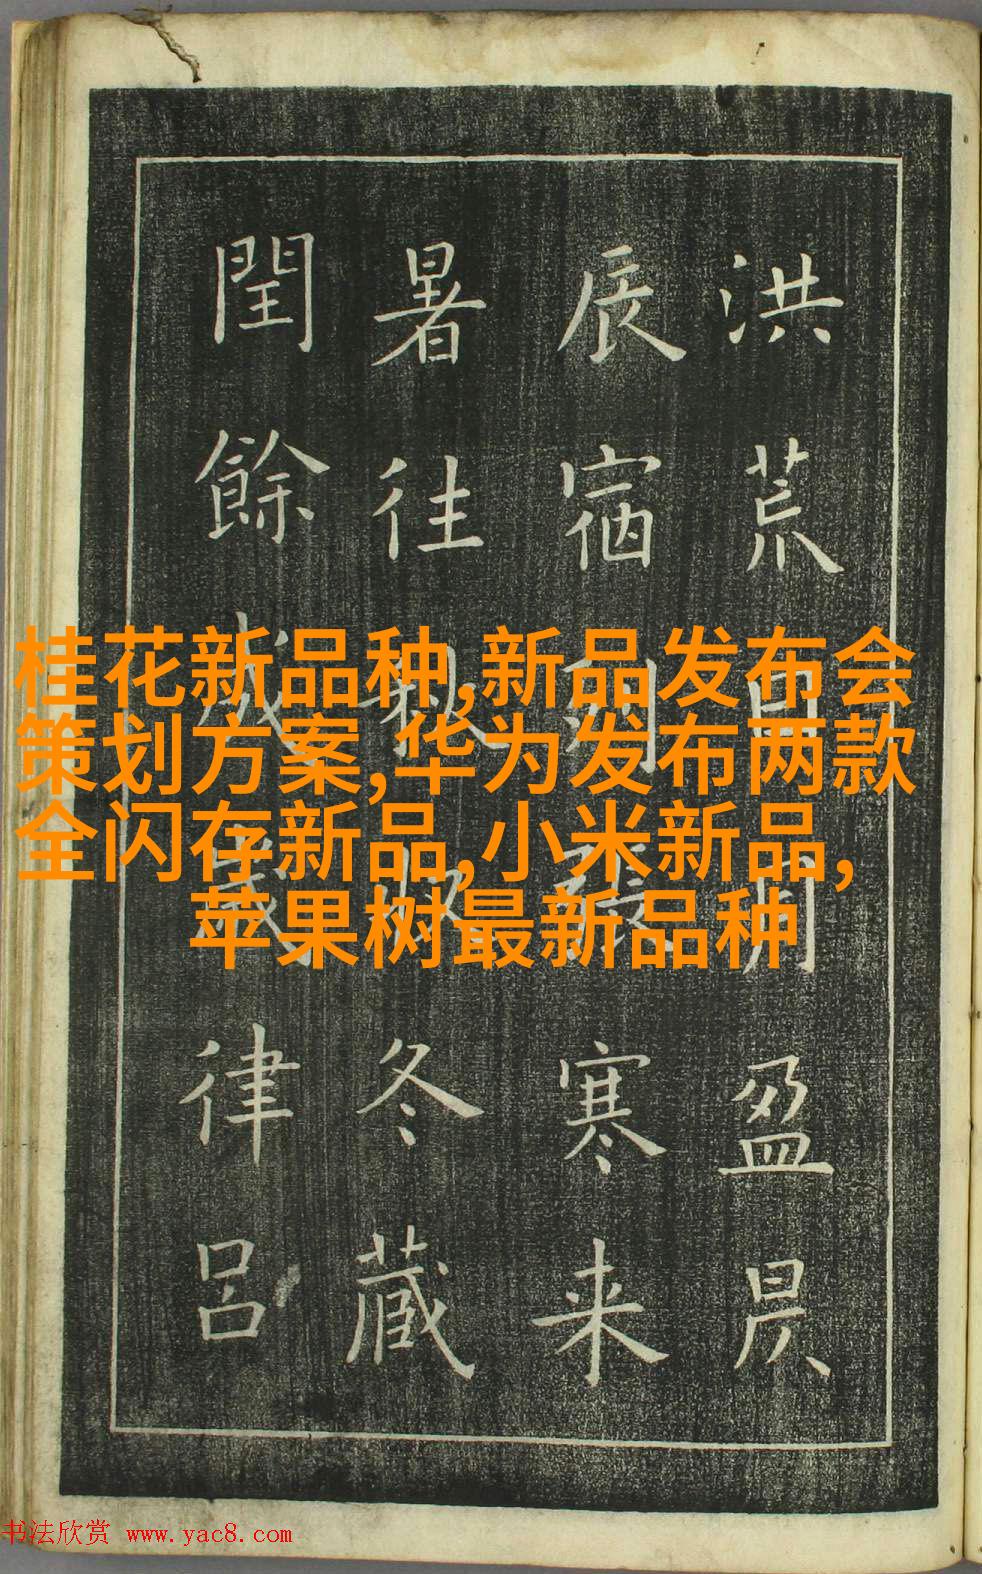 洪荒日月盈昃
辰宿寒来
暑往冬藏
閏餘成律呂
桂花新品种,新品发布会
策划方案,华为发布两款
全闪存新品,小米新品,
苹果树最新品种
书法欣赏 www.yac8.com